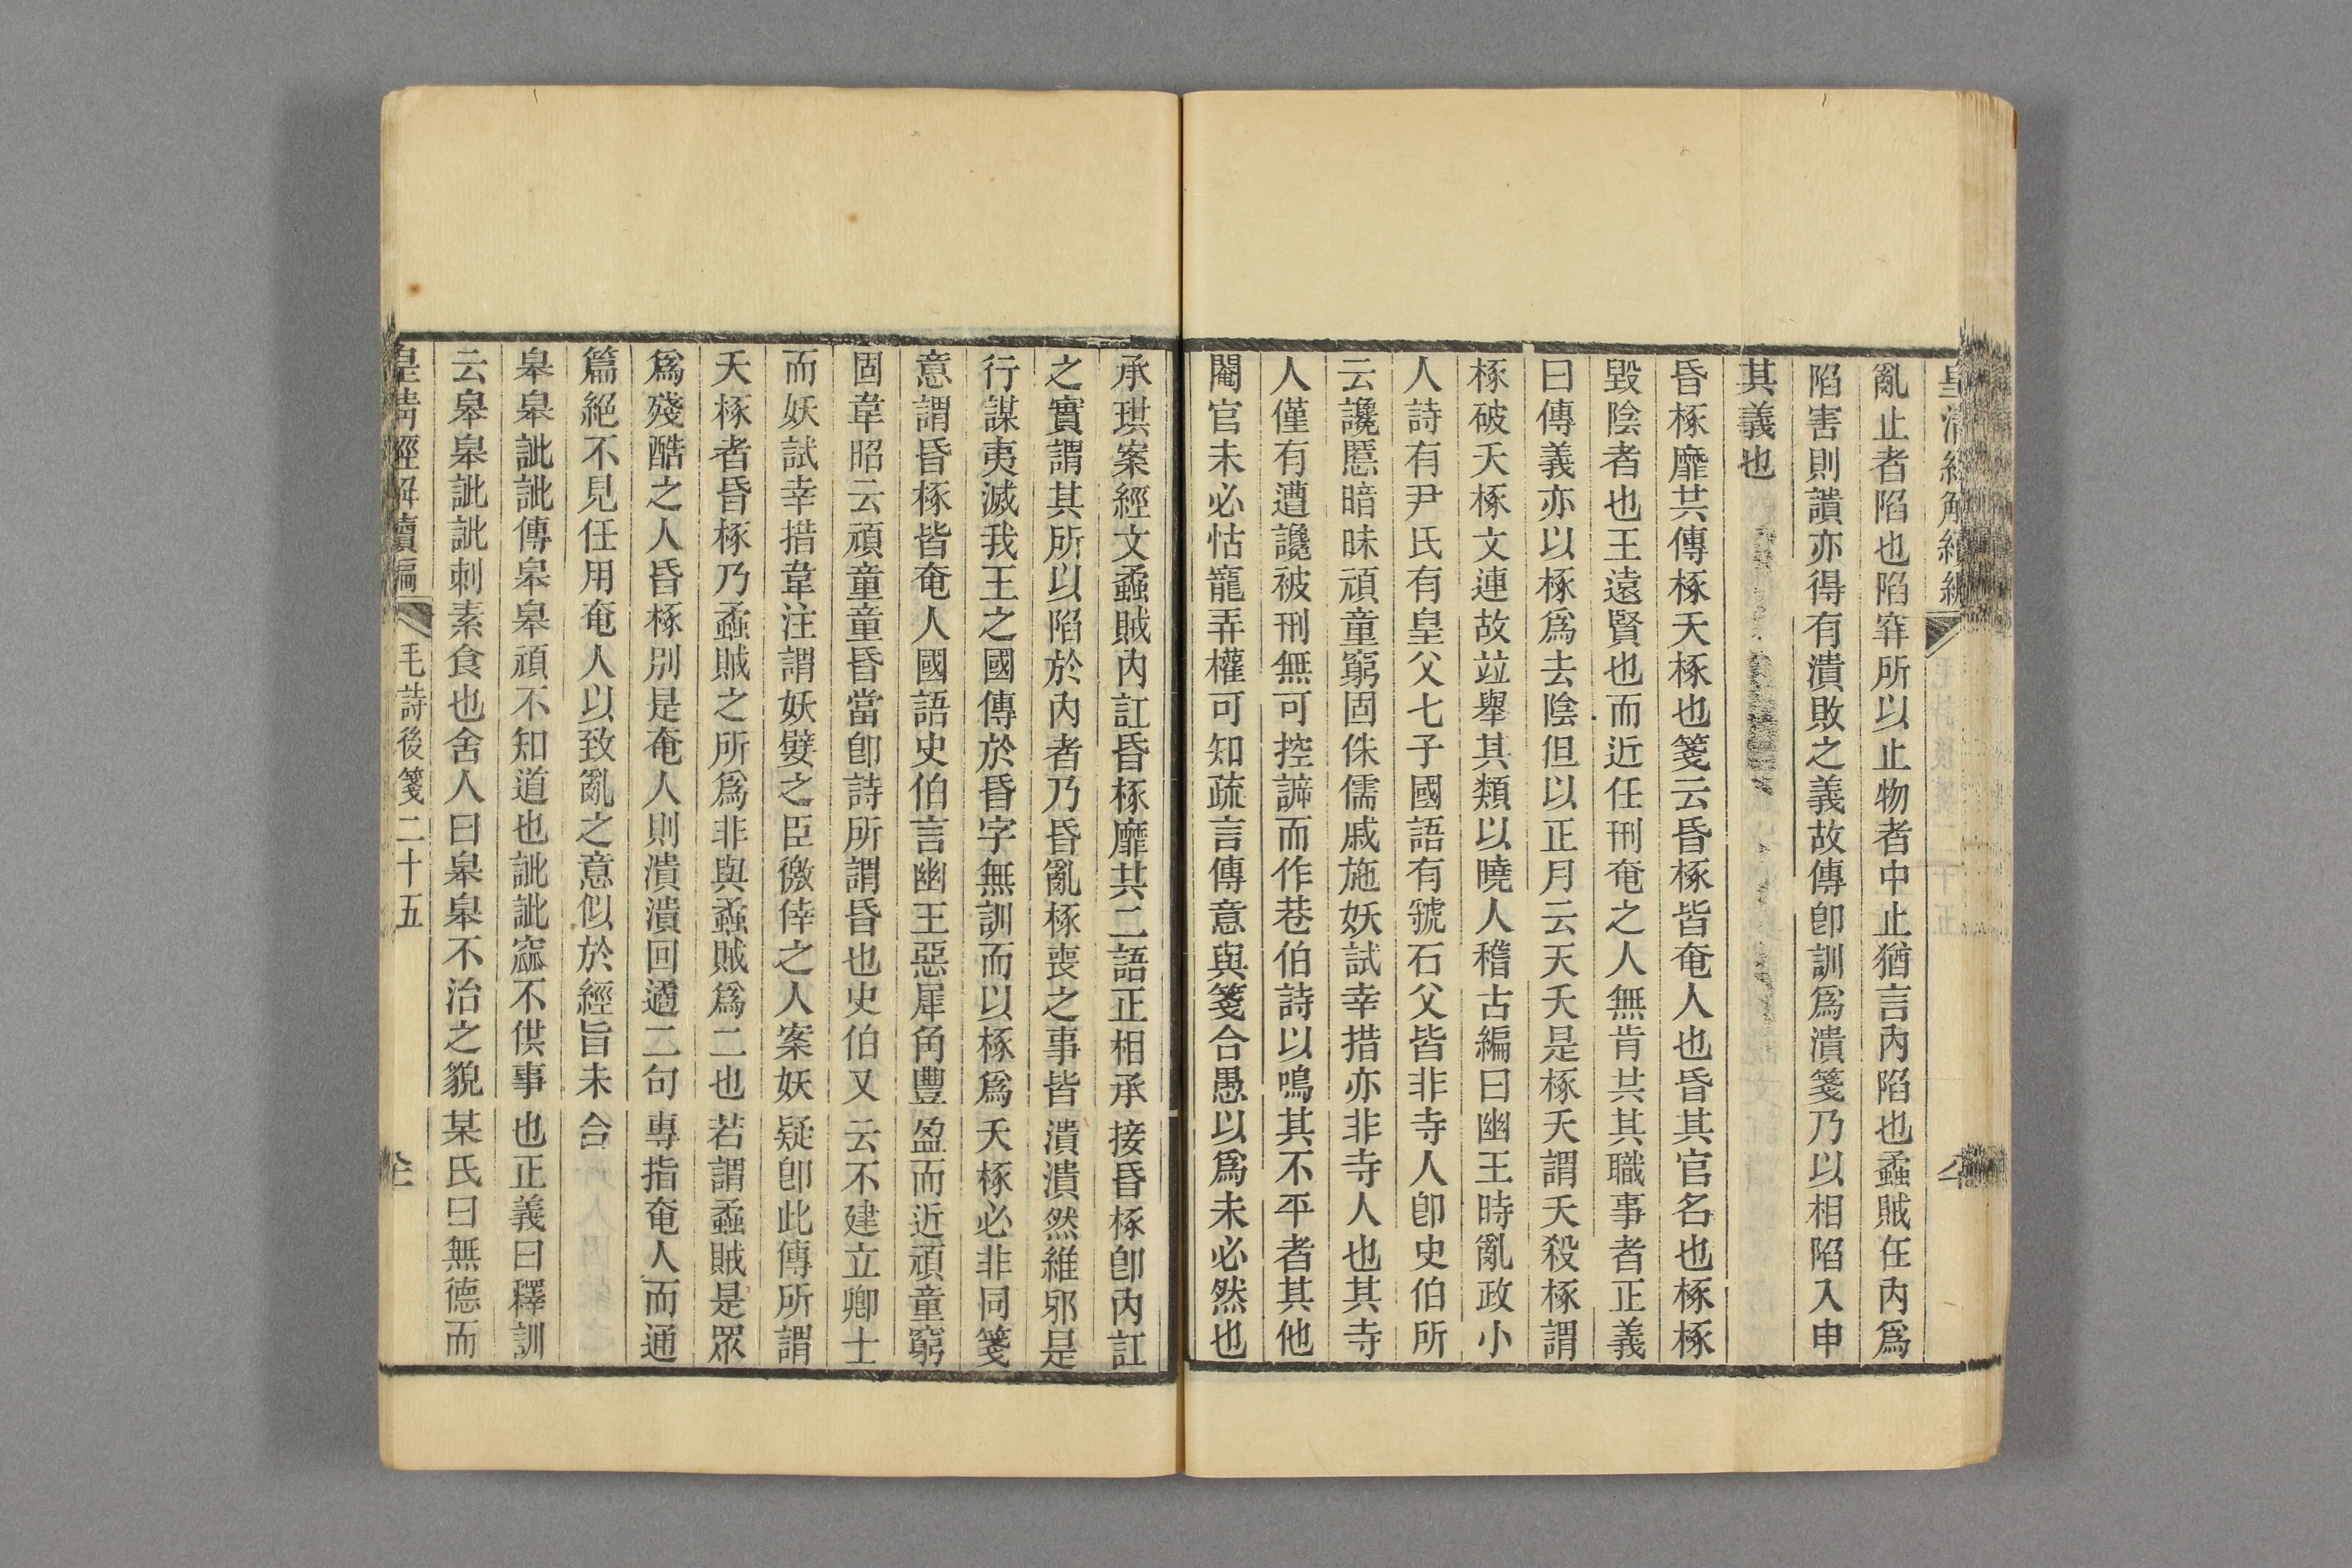 亂止者陷也陷穽所以止物者中止猶言內陷也蟊賊在內爲
陷害則讀亦得有潰敗之義故傳卽訓爲潰箋乃以相陷入申
其義也
昏椓靡共傳椓夭椓也箋云昏椓皆奄人也昏其官名也椓椓
毀陰者也王遠賢也而近任刑奄之人無肯共其職事者正義
曰傳義亦以椓爲去陰但以正月云天夭是椓夭謂夭殺椓謂
椓破夭椓文連故竝舉其類以曉人稽古編曰幽王時亂政小
人詩有尹氏有皇父七子國語有虢石父皆非寺人卽史伯所
云讒慝暗昧頑童窮固侏儒戚施妖試幸措亦非寺人也其寺
人僅有遭讒被刑無可控諦而作巷伯詩以鳴其不平者其他
閹官未必怙寵弄權可知疏言傳意與箋合愚以爲未必然也
承珙案經文蟊賊內訌昏椓靡共二語正相承接昏椓卽內訌
之實謂其所以陷於內者乃昏亂椓喪之事皆潰潰然維邪是
行謀夷滅我王之國傳於昏字無訓而以椓爲夭椓必非同箋
意謂昏椓皆奄人國語史伯言幽王惡犀角豐盈而近頑童窮
固韋昭云頑童童昏當卽詩所謂昏也史伯又云不建立卿士
而妖試幸措韋注謂妖嬖之臣徼倖之人案妖疑卽此傳所謂
夭椓者昏椓乃蟊賊之所爲非與蟊賊爲二也若謂蟊賊是眾
爲殘酷之人昏椓別是奄人則潰潰回遹二句專指奄人而通
篇絕不見任用奄人以致亂之意似於經旨未合
皋皋訿訿傳皋皋頑不知道也訿訿窳不供事也正義曰釋訓
云皋皋訿訿刺素食也舍人曰皋皋不治之貌某氏曰無德而
皇清經解續編 毛詩後箋二十五